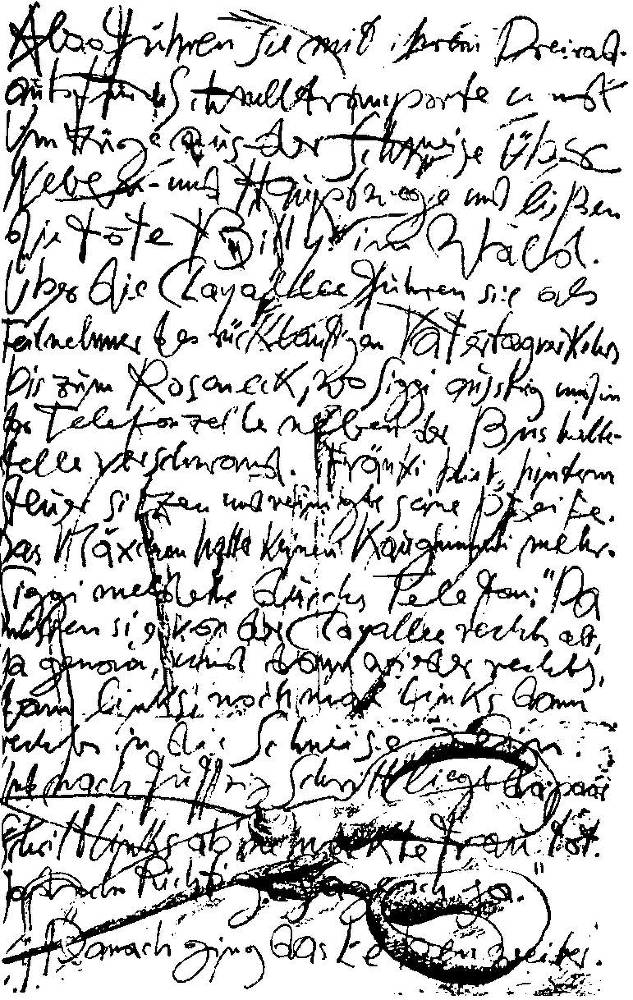 Also fuhren sie mit ihrem Dreirad-
auto für Schnelltransporte und
Umzüge aus der Schneise über
Neben- und Hauptwege und ließen
die tote Billy im Wald.
Über die Clayallee fuhren sie als
Teilnehmer des rückläufigen Vatertagverkehrs
bis zum Roseneck, wo Siggi ausstieg und in
der Telefonzelle neben der Bushalte-
stelle verschwand. Fränki blieb hinterm
Steuer sitzen und seine Pfeife.
Das Mäxchen hatte keinen Kaugummi mehr.
Siggi meldete durchs Telefon: "Da
müssen sie von der Clayallee rechts ab,
ja genau, und dann wieder rechts,
dann links, noch mal links dann
rechts in die Schneise rein.
Und nach fuffzig Schritt liegt da paar
Schritt links ab ne nackte Frau. Tot.
Richtig. ja."
Danach ging das Leben weiter.